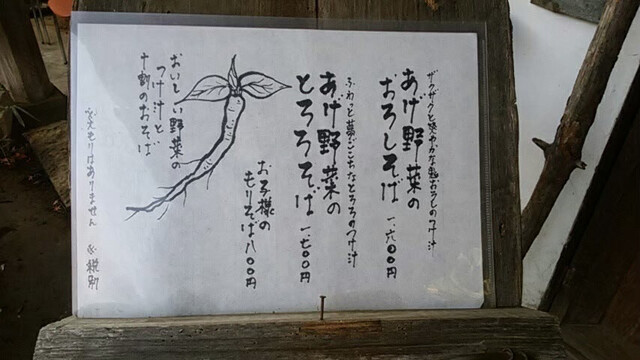 ザクザクと爽やかな鬼おろしのつけ汁
あげ野菜の
おろしそば 一、六〇〇円
ふわっと夢ごこちなとろろのつけ汁
あげ野菜の
とろろそば 一、七〇〇円
お子様の
もりそば八〇〇円
おいしい野菜の
つけ汁と
十割のおそば
※大もりはありません ※税別